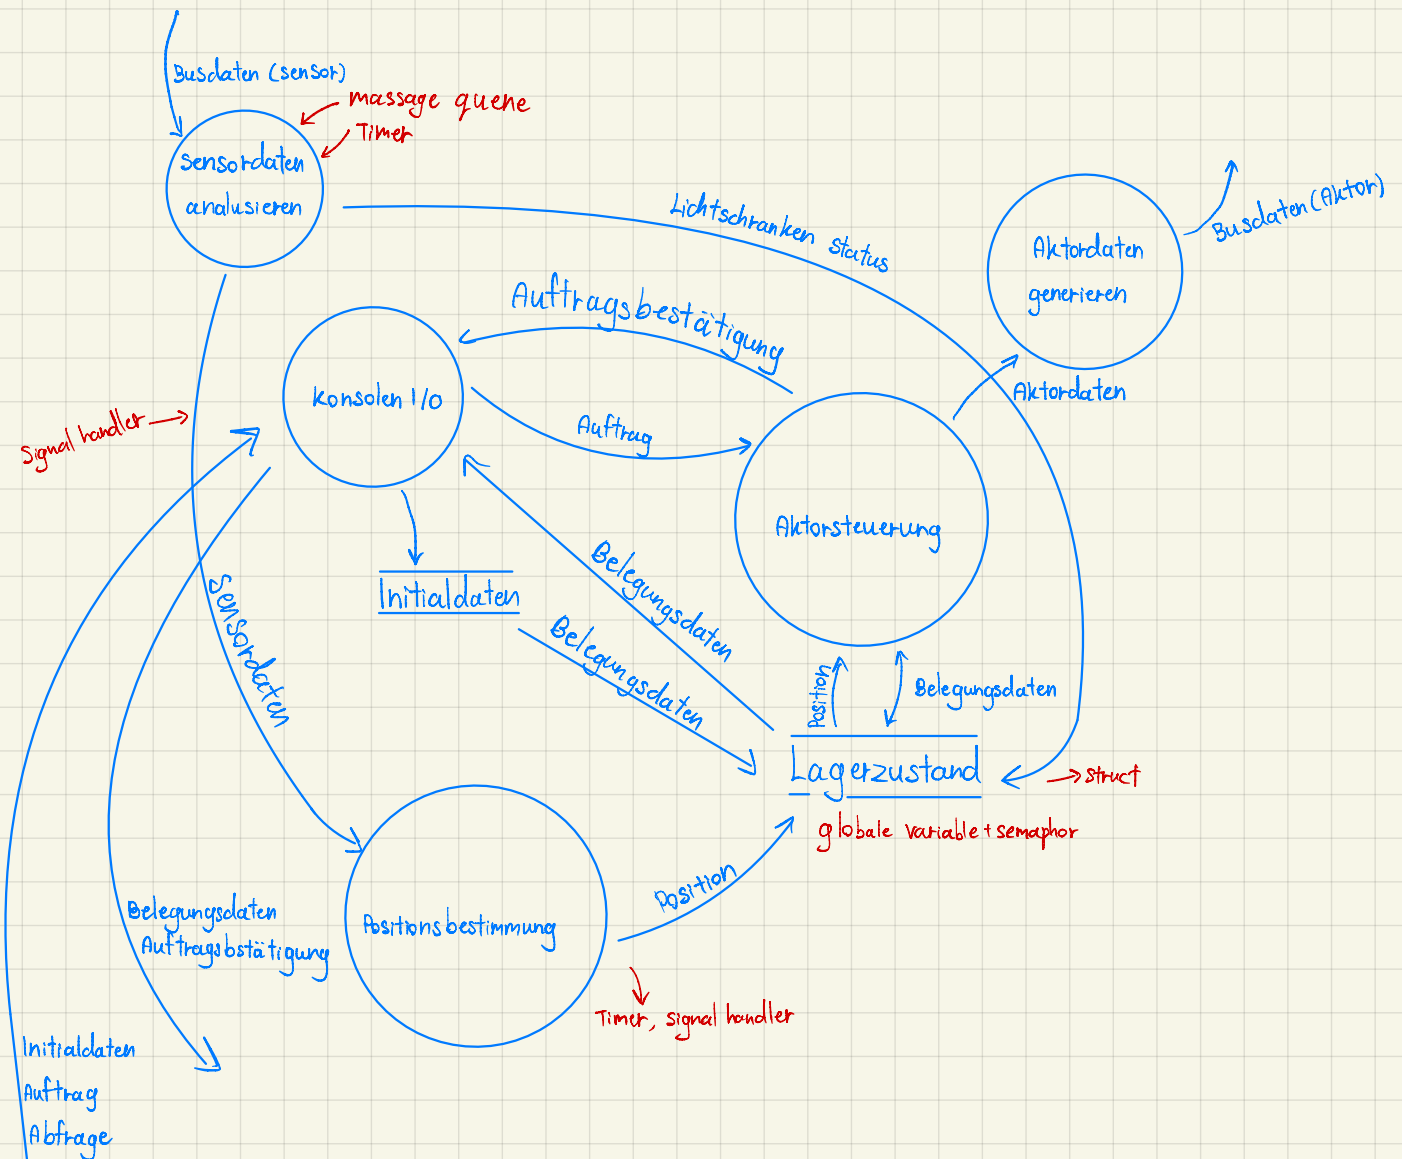 Busdaten (sensor)
massage quene
Timer
sensordaten
analusieren
Lichtschranken status
Aktordaten
generieren
Busdaten (Aktor)
Auftragsbestätigung
Aktordaten
Konsolen I/O
Auftrag
Signal handler
Aktorsteuerung
Belegungsdaten
Initialdaten
Sensordaten
Belegungsdaten
Position
Belegungsdaten
Lagerzustand
struct
globale variable + semaphor
Position
Positionsbestimmung
Belegungsdaten
Auftragsbstätigung
Timer, signal handler
Initialdaten
Auftrag
Abfrage